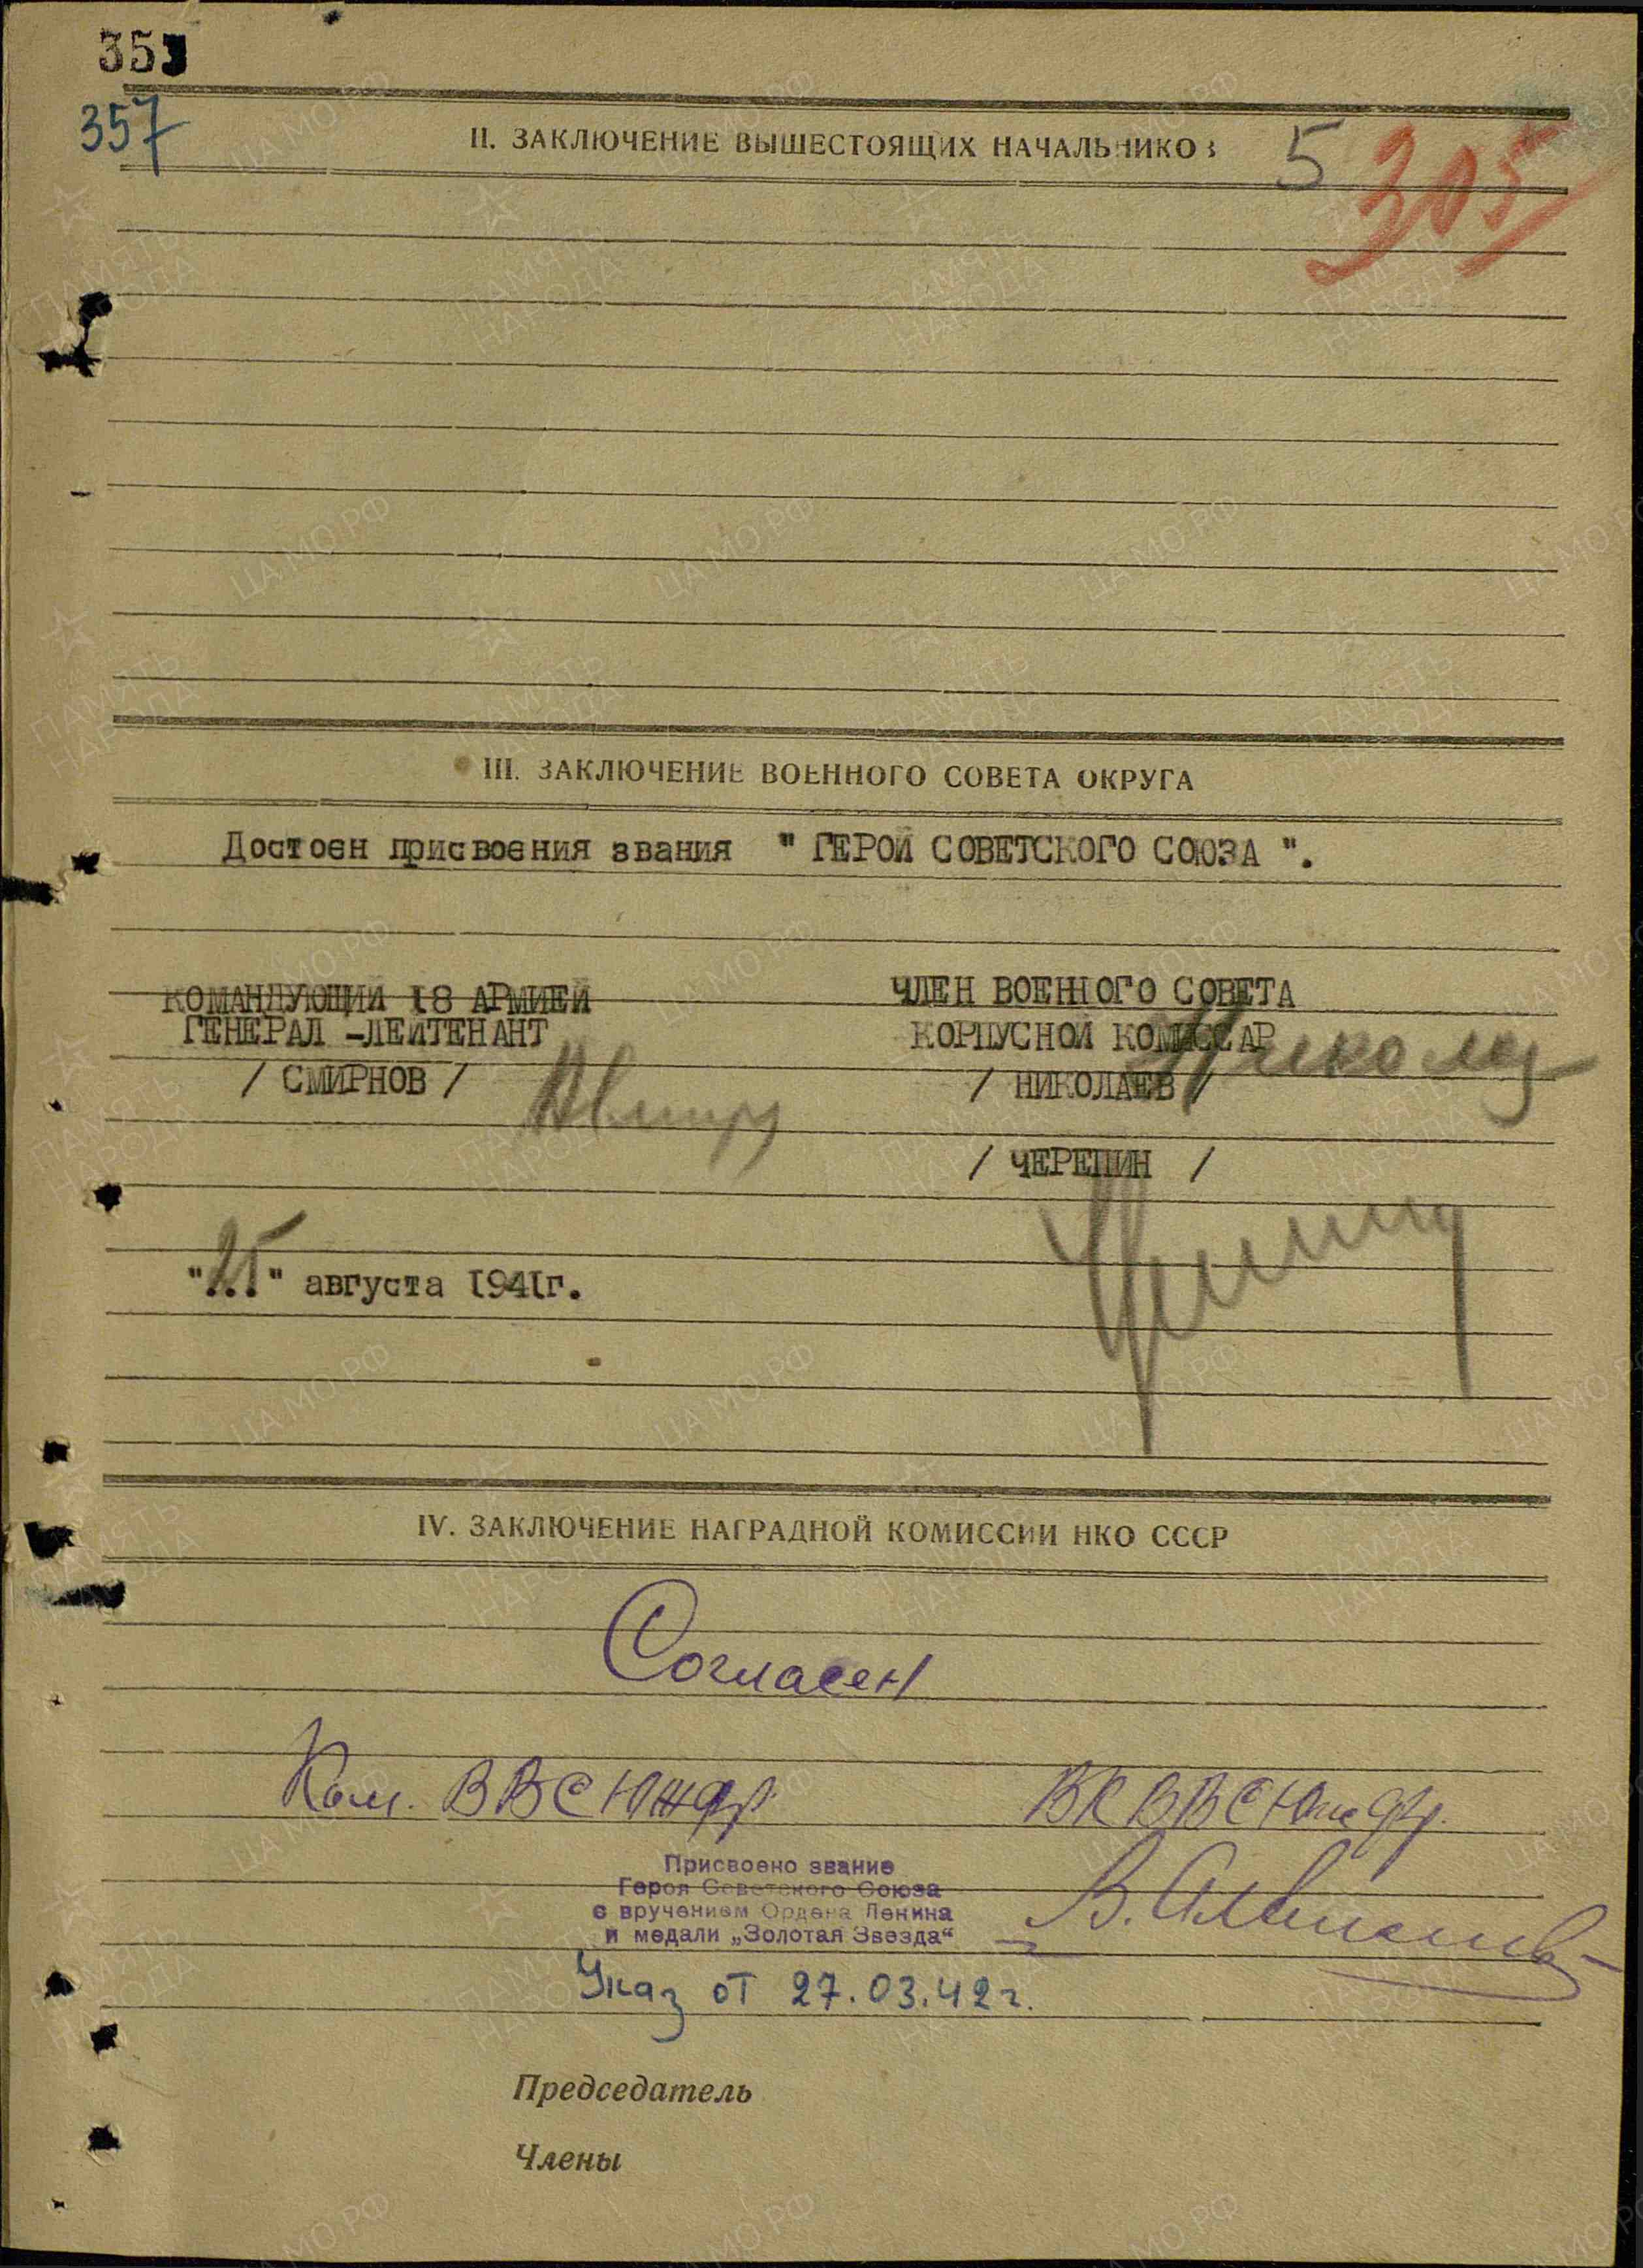 353
357
II. ЗАКЛЮЧЕНИЕ ВЫШЕСТОЯЩИХ НАЧАЛЬНИКОВ
5
305
III. ЗАКЛЮЧЕНИЕ ВОЕННОГО СОВЕТА ОКРУГА
Достоен присвоения звания " ГЕРОЙ СОВЕТСКОГО СОЮЗА ".
КОМАНДУЮЩИЙ 18 АРМИЕЙ
ГЕНЕРАЛ -ЛЕЙТЕНАНТ
/ СМИРНОВ /
ЧЛЕН ВОЕННОГО СОВЕТА
КОРПУСНОЙ КОМИССАР
/ НИКОЛАЕВ /
/ ЧЕРЕПИН /
"25" августа 1941г.
IV. ЗАКЛЮЧЕНИЕ НАГРАДНОЙ КОМИССИИ НКО СССР
Согласен
Ком. ВВС Южфр.
ВК ВВС Южфр.
Присвоено звание
Героя Советского Союза
с вручением Ордена Ленина
и медали „Золотая Звезда“
Указ от 27.03.42г.
Председатель
Члены
ПАМЯТЬ НАРОДА
ЦА МО РФ